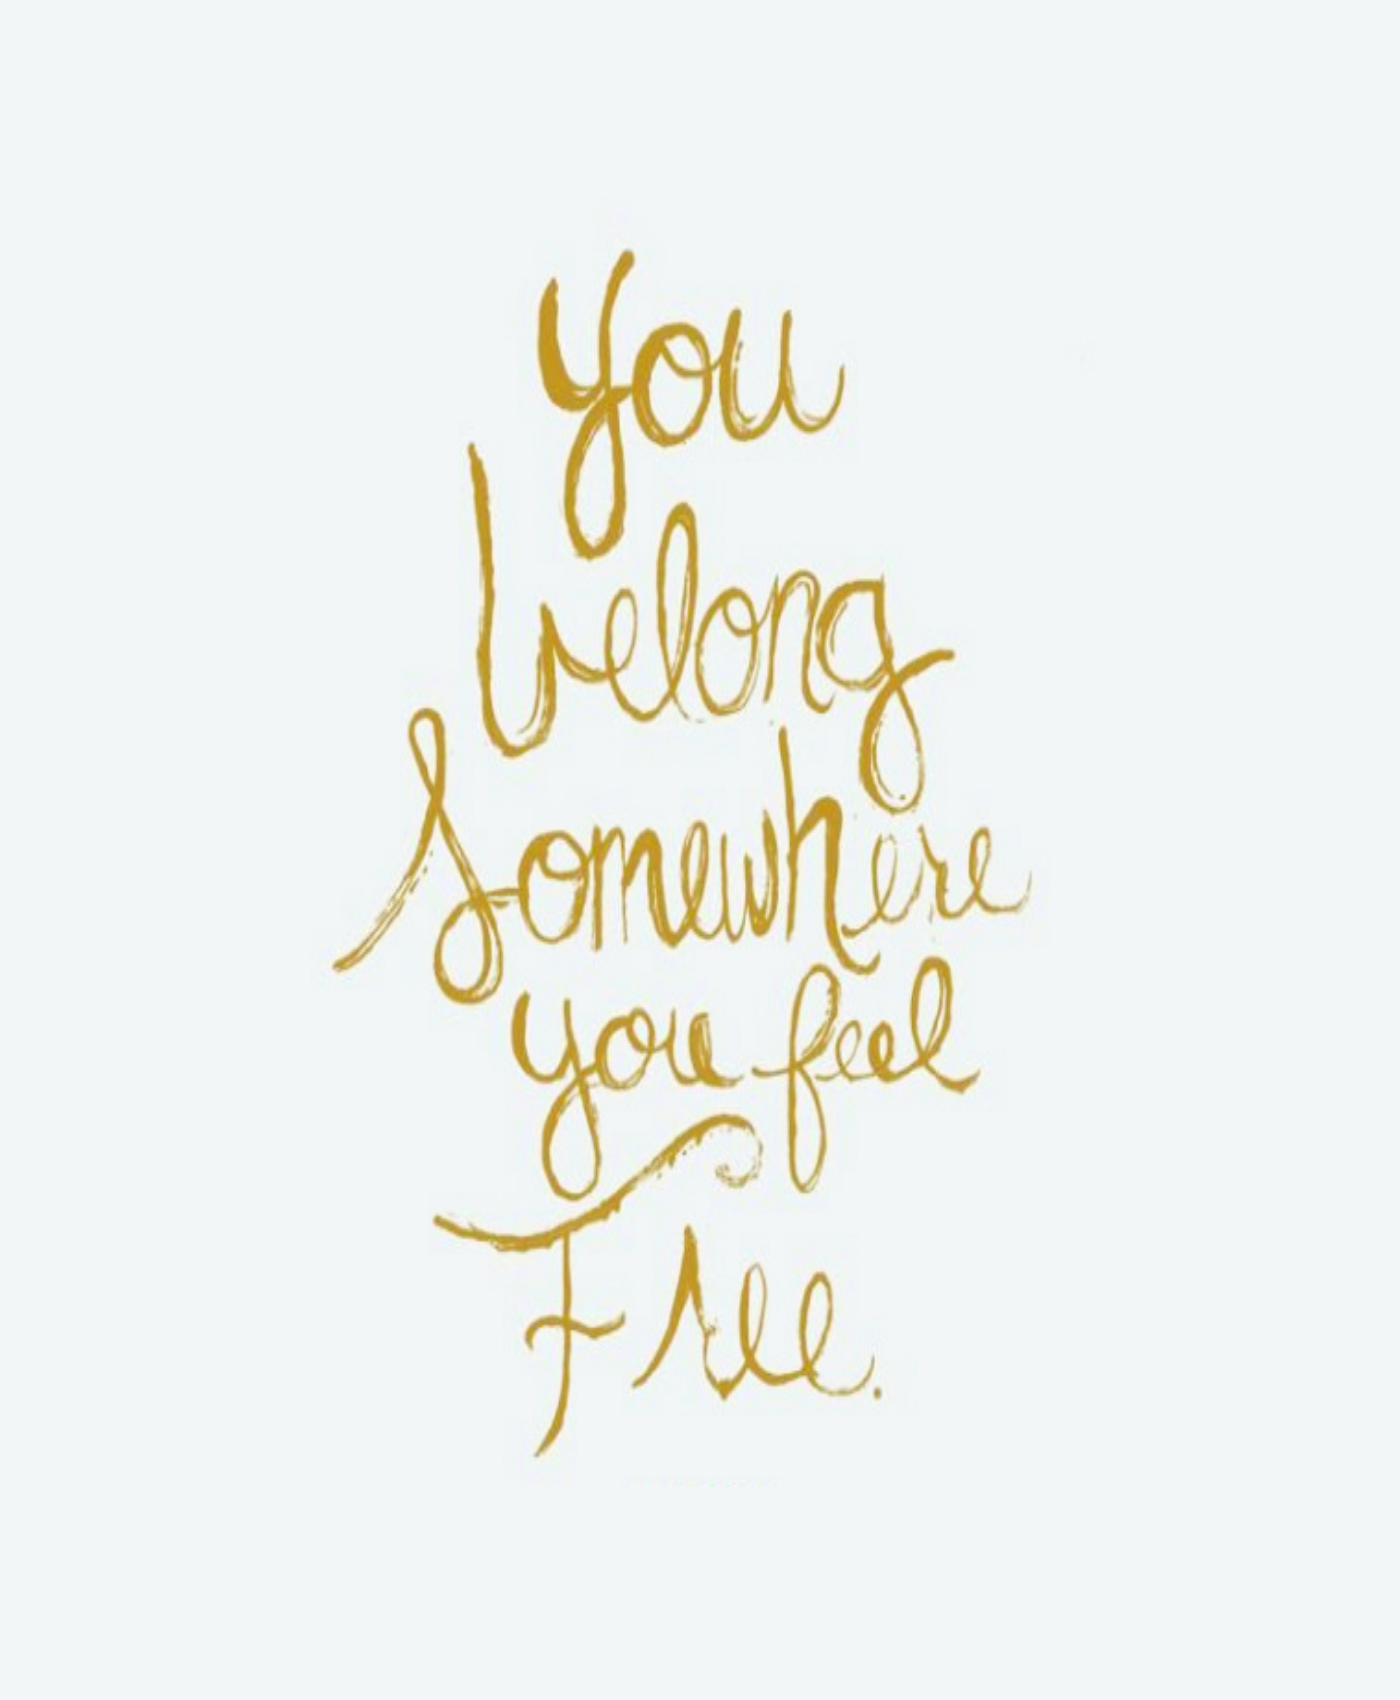 you
belong
Somewhere
you feel
Free.